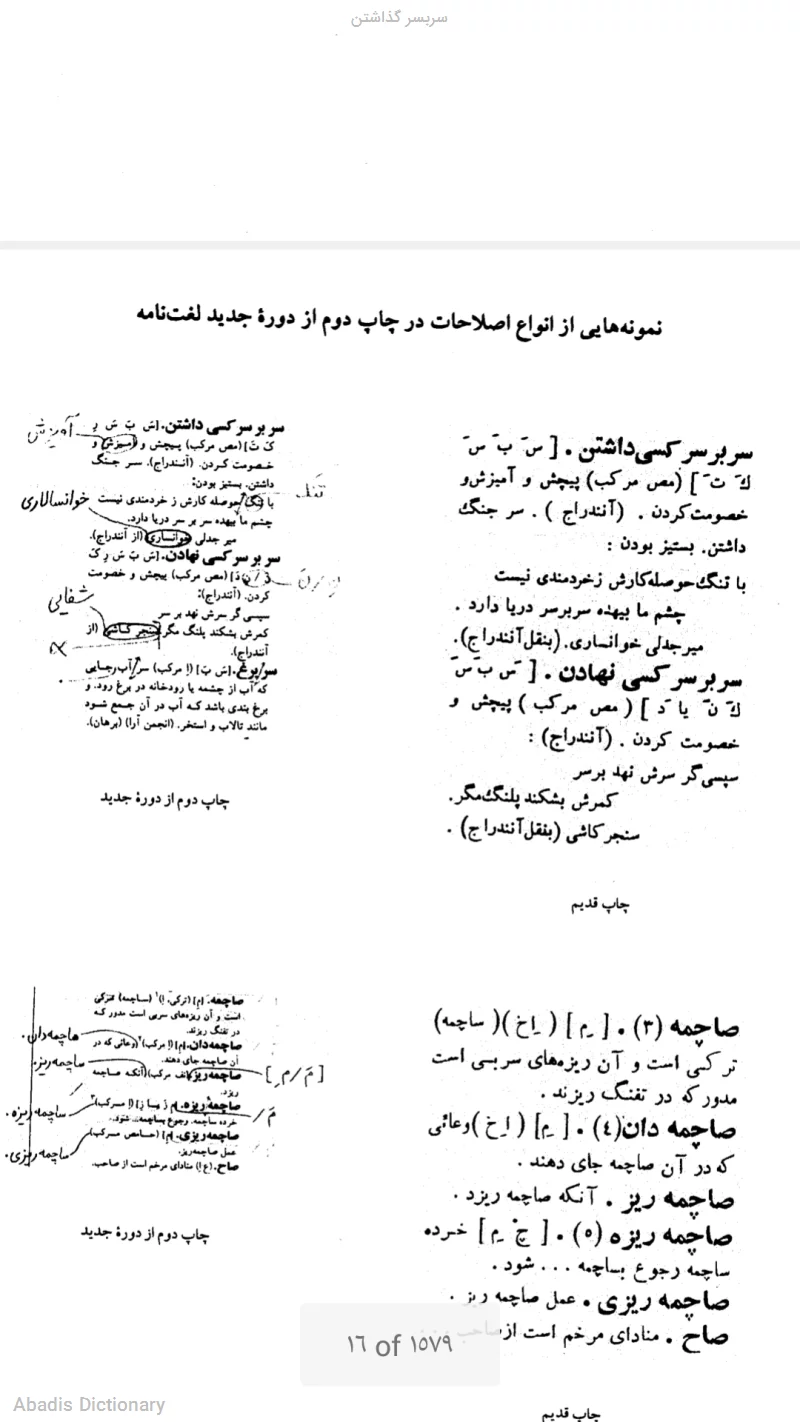 سربسر گذاشتن
نمونه‌هایی از انواع اصلاحات در چاپ دوم از دورهٔ جدید لغت‌نامه
سر بر سر کسی داشتن . [ سَ بَ سَ
کَ تَ ] (مص مرکب) پیچش و آمیزش و
خصومت کردن . (آنندراج ) . سر جنگ
داشتن. بستیز بودن :
با تنگ حوصله کارش ز خردمندی نیست
چشم ما بیهده سر بر سر دریا دارد .
میر جدلی خوانساری. (بنقل آنندراج).
سر بر سر کسی نهادن . [ سَ بَ سَ
کَ نَ یا دَ ] ( مص مرکب ) پیچش و
خصومت کردن . (آنندراج) :
سپسی گر سرش نهد بر سر
کمرش بشکند پلنگ مگر.
سنجر کاشی (بنقل آنندراج) .
چاپ قدیم
سر بر سر کسی داشتن. [سَ بَ سَ رِ
کَ تَ] (مص مرکب) پیچش و آمیزش و
خصومت کردن. (آنندراج). سر جنگ
داشتن. بستیز بودن:
با تنگ حوصله کارش ز خردمندی نیست
چشم ما بیهده سر بر سر دریا دارد.
میر جدلی خوانساری (از آنندراج).
سر بر سر کسی نهادن. [سَ بَ سَ رِ کَ
(مص مرکب) پیچش و خصومت
کردن. (آنندراج):
سپسی گر سرش نهد بر سر
کمرش بشکند پلنگ مگر سنجر کاشی (از
آنندراج).
سر برغ. [سَ بَ] (اِ مرکب) سر آب. جایی
که آب از چشمه یا رودخانه در برغ رود. و
برغ بندی باشد که آب در آن جمع شود
مانند تالاب و استخر. (انجمن آرا) (برهان).
آویزش
تنگ
خوانسالاری
شفایی
چاپ دوم از دورهٔ جدید
صاچمه (۳) . [ مِ ] ( اِخ )( ساچمه)
ترکی است و آن ریزه‌های سربی است
مدور که در تفنگ ریزند .
صاچمه دان(٤) . [ مِ] ( اِخ )وعائی
که در آن صاچمه جای دهند .
صاچمه ریز . آنکه صاچمه ریزد .
صاچمه ریزه (٥) . [ چْ مِ] خرده
ساچمه رجوع بساچمه ... شود .
صاچمه ریزی . عمل صاچمه ریز .
صاح . منادای مرخم است از صاحب
چاپ قدیم
صاچمه. [مِ] (ترکی، اِ)۱ (ساچمه) تترکی
است و آن ریزه‌های سربی است مدور که
در تفنگ ریزند.
صاچمه‌دان. [مِ] (اِ مرکب)۲ وعائی که در
آن صاچمه جای دهند.
صاچمه‌ریز (نف مرکب) آنکه صاچمه
ریزد.
صاچمه‌ریزه. (اِ مرکب)۳
خرده ساچمه. رجوع بساچمه... شود.
صاچمه‌ریزی. [مِ] (حامص مرکب)
عمل صاچمه‌ریز.
صاح. (ع اِ) منادای مرخم است از صاحب.
صاچمه‌دان.
صاچمه‌ریز.
[ مَ / مِ ]
صاچمه ریزه.
مَ /
صاچمه ریزی.
چاپ دوم از دورهٔ جدید
١٦ of ١٥٧٩
Abadis Dictionary